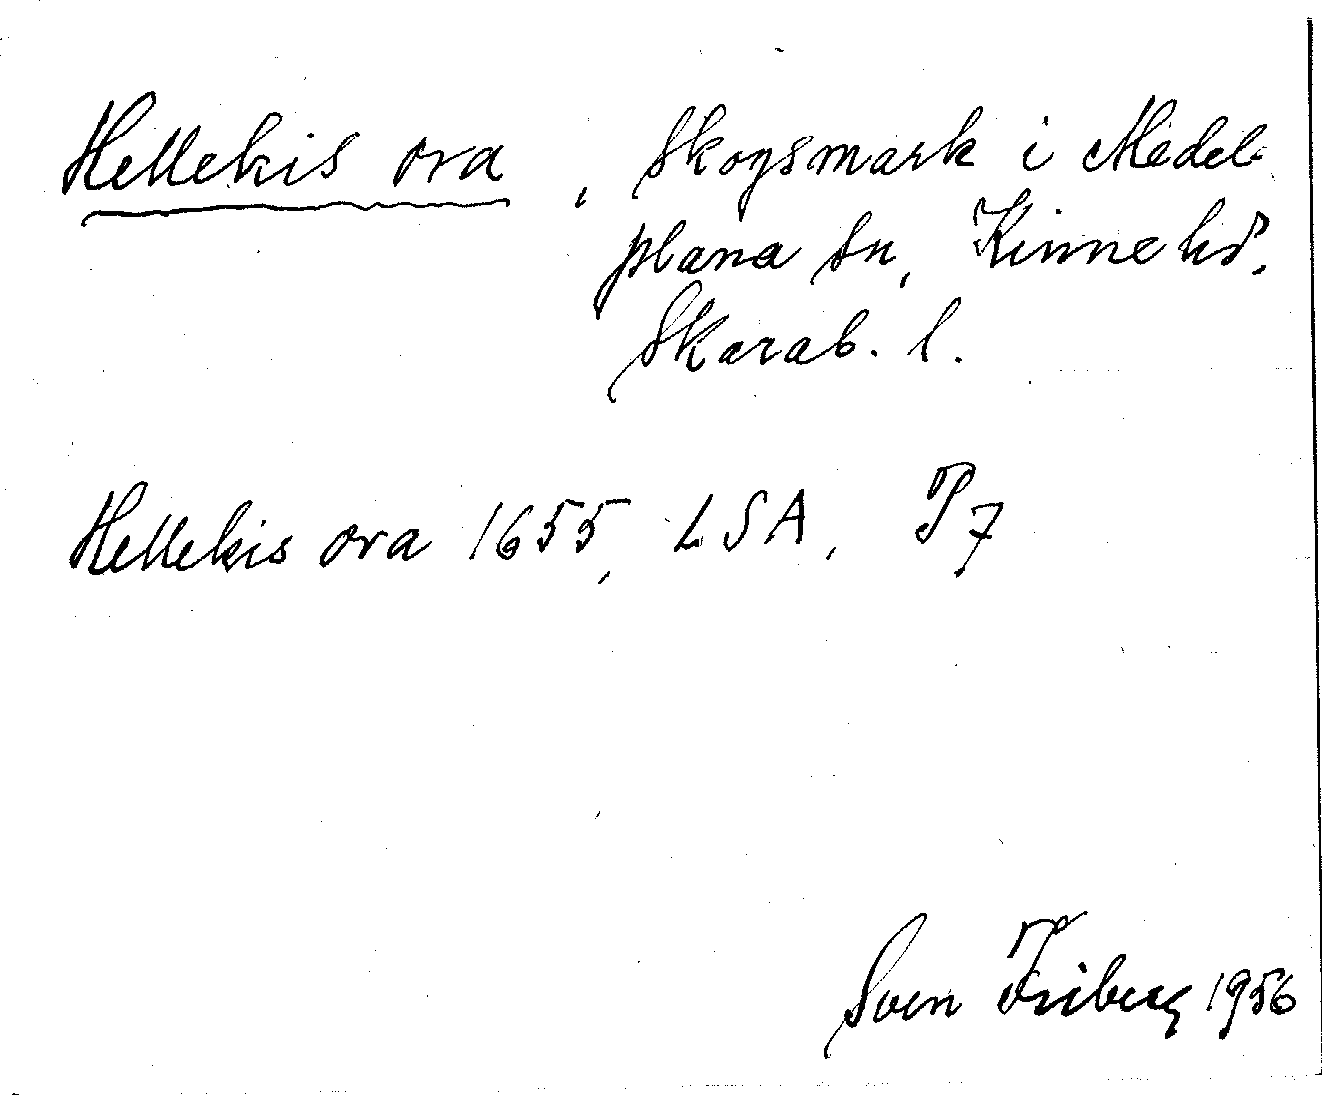 Hellekis ora, Skogsmark i Medel-
plana sn, Kinne hd.
Skarab. l.
Hellekis ora 1655, LSA, P7
Sven Friberg 1956